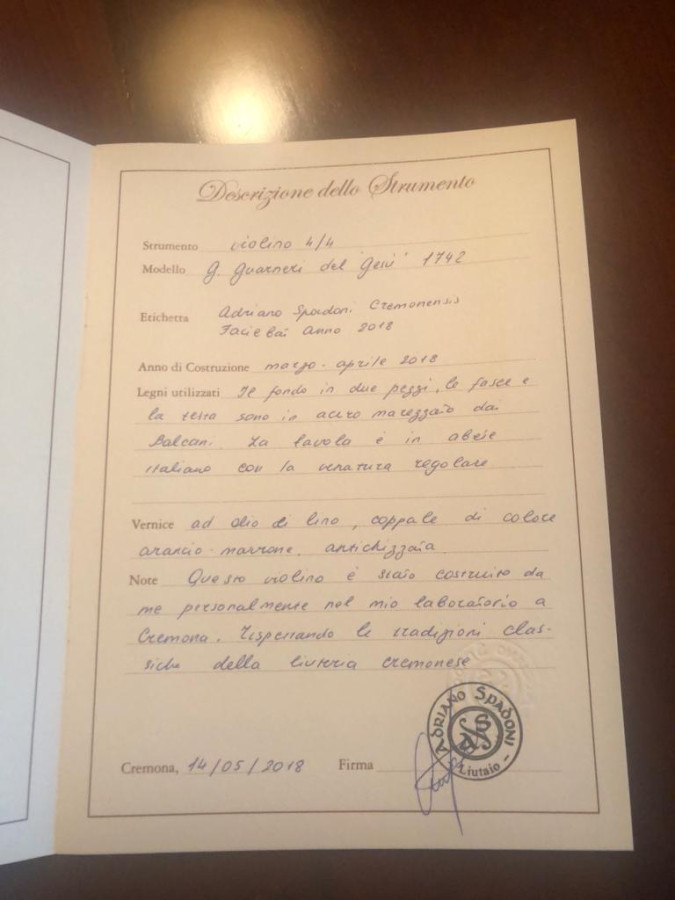 Descrizione dello Strumento
Strumento violino 4/4
Modello G. Guarneri del "Gesù" 1742
Etichetta Adriano Spadoni Cremonensis
Faciebat Anno 2018
Anno di Costruzione marzo - aprile 2018
Legni utilizzati Il fondo in due pezzi, le fasce e
la testa sono in acero marezzato dai
Balcani. La tavola è in abete
italiano con la venatura regolare
Vernice ad olio di lino, coppale di colore
arancio-marrone, antichizzata
Note Questo violino è stato costruito da
me personalmente nel mio laboratorio a
Cremona, rispettando le tradizioni clas-
siche della liuteria cremonese
ADRIANO SPADONI
Liutaio
Cremona, 14/05/2018 Firma